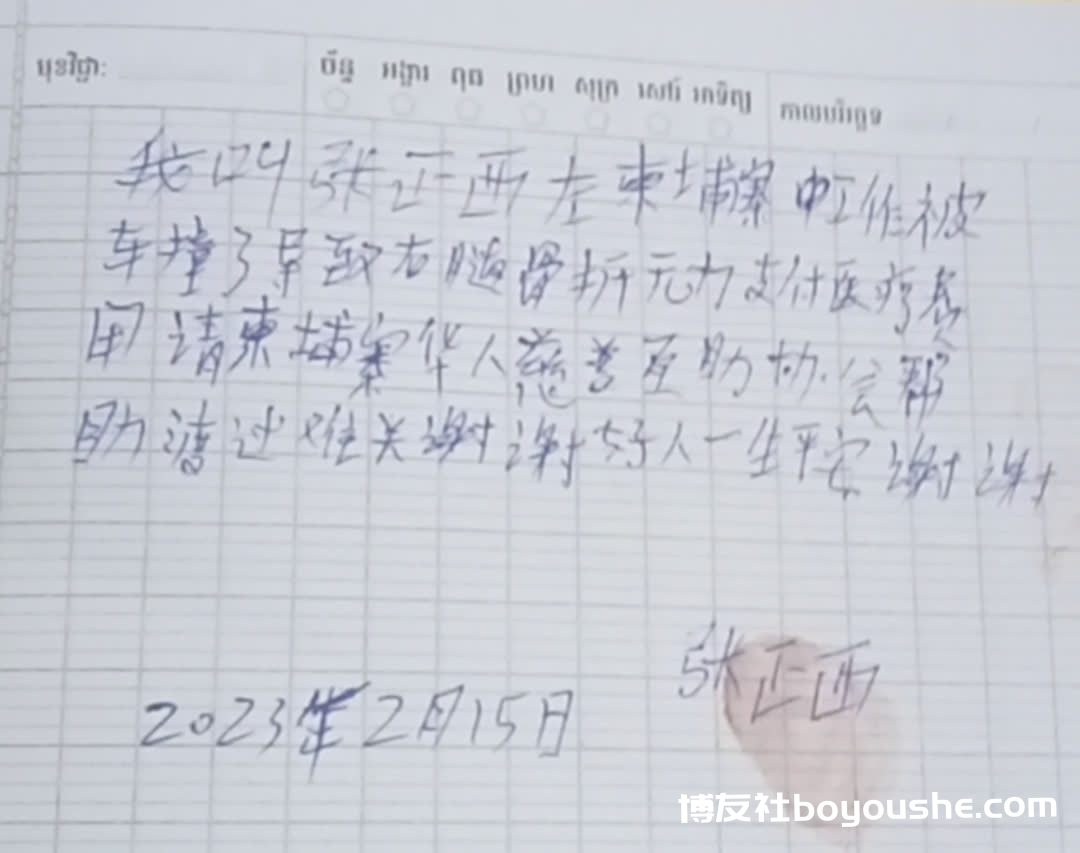 មុខវិជ្ជា: ច័ន្ទ អង្គារ ពុធ ព្រហ សុក្រ សៅរ៍ អាទិត្យ កាលបរិច្ឆេទ
我叫张正西在柬埔寨中工作被
车撞了导致右腿骨折无力支付医疗费
用请柬埔寨华人慈善互助协会帮
助渡过难关谢谢好人一生平安谢谢
张正西
2023年2月15日
博友社boyoushe.com